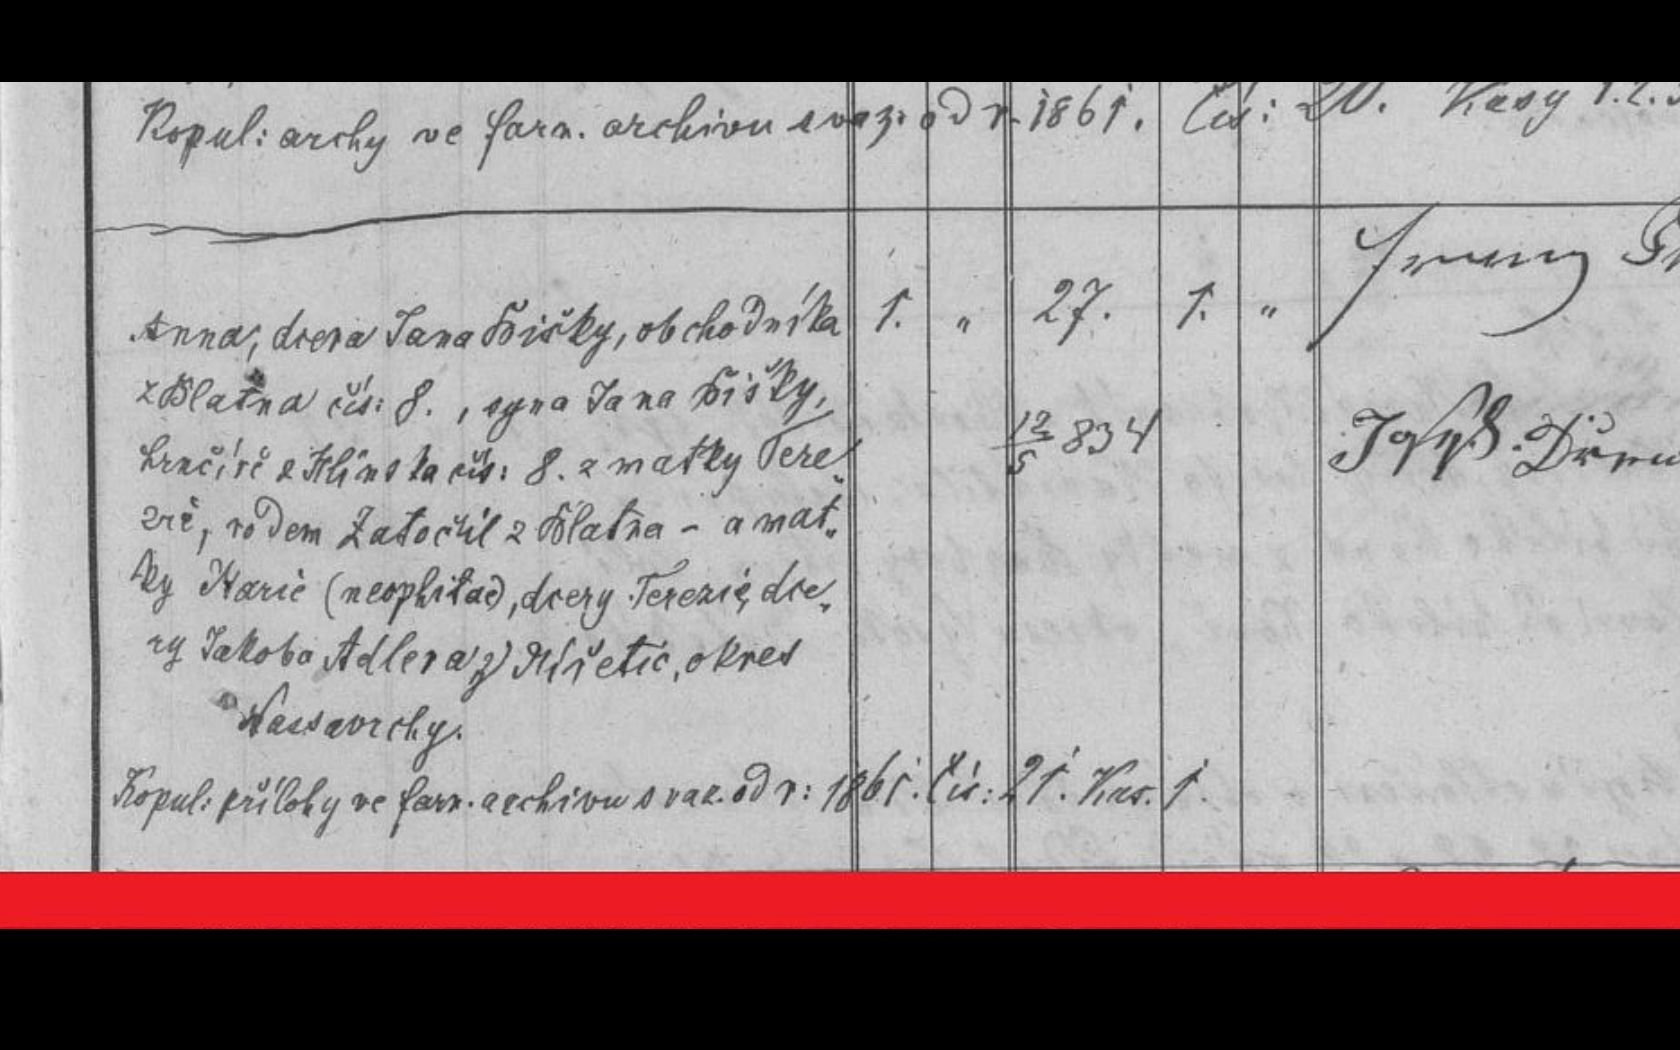 Kopul: archy ve farn. archivu svaz: od r. 1861. Čís: 20. Kusy 1.2.
Anna, dcera Jana Bišky, obchodníka 1. „ 27. 1. „
z Blatna čís: 8. , syna Jana Bišky,
hrnčíře z Hlinska čís: 8. z matky Tere„ 12/5 834
zie, rodem Zatočil z Blatna – a mat„
ky Marie (neophitae), dcery Terezie, dce„
ry Jakoba Adlera z Miřetic, okres
Nassavrchy.
Kopul: přílohy ve farn. archivu svaz. od r: 1861. Čís: 21. Kus. 1.